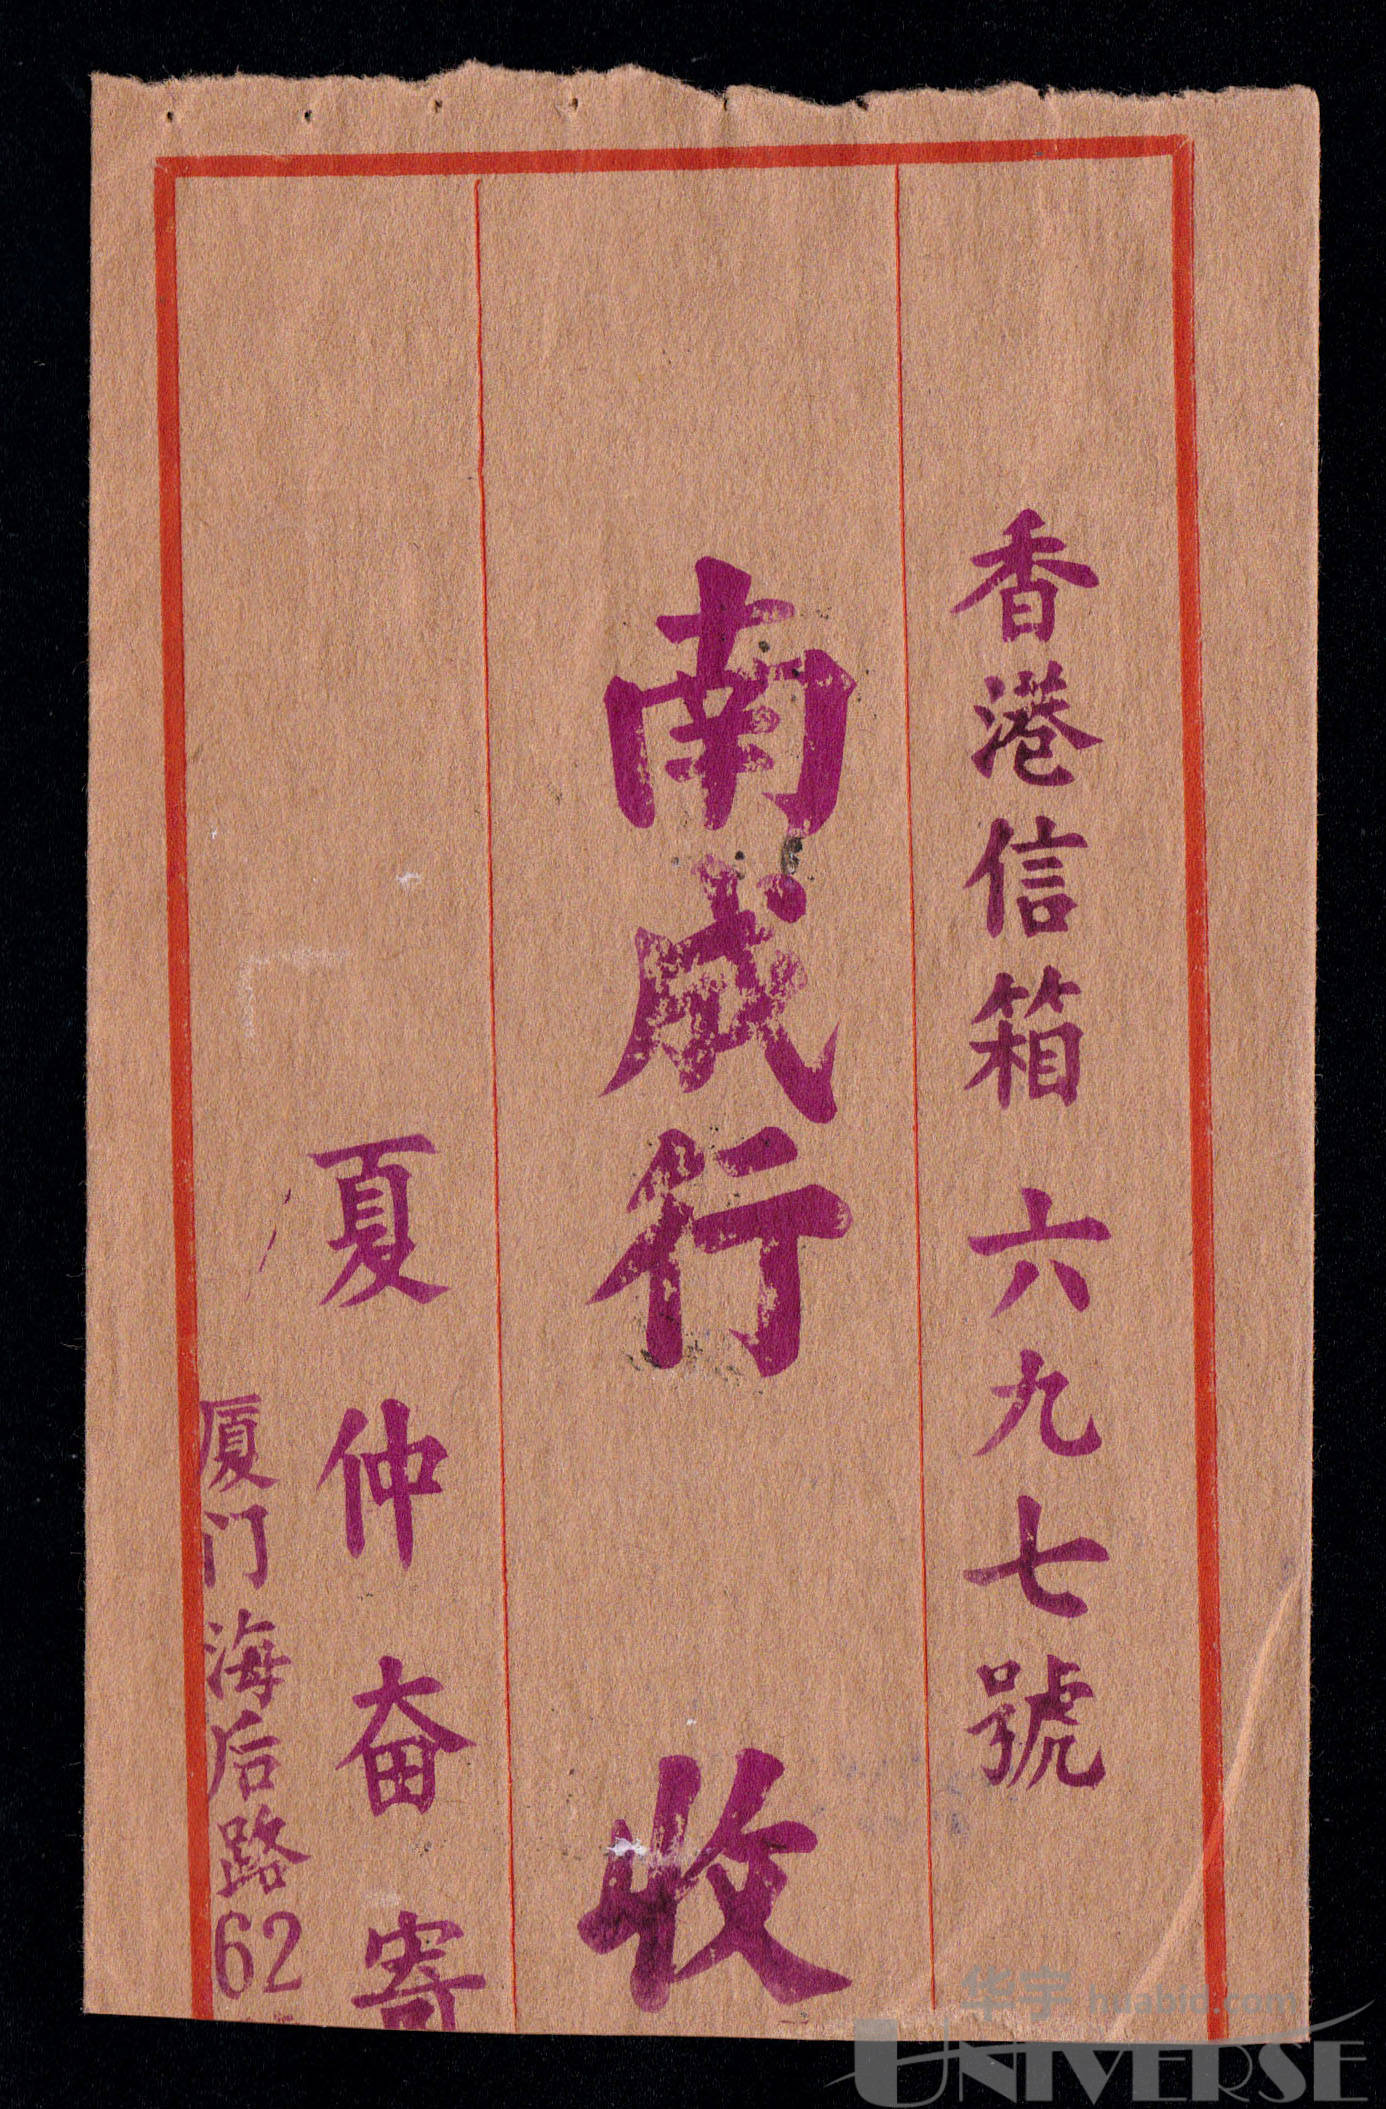 香港信箱六九七號
南成行 收
夏仲奋寄
厦门海后路62
华宇 huabid.com
UNIVERSE